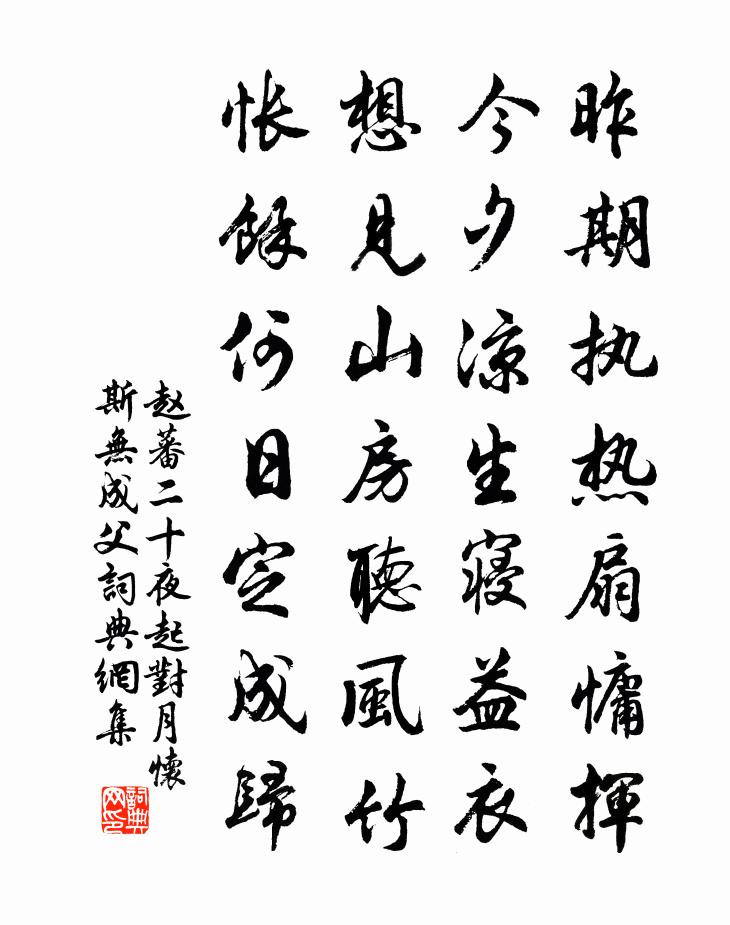 昨期执热扇慵揮
今夕凉生寝益衣
想見山房聽風竹
悵餘何日定成歸
赵蕃二十夜起對月懷
斯無成父詞典網集
詞典网印